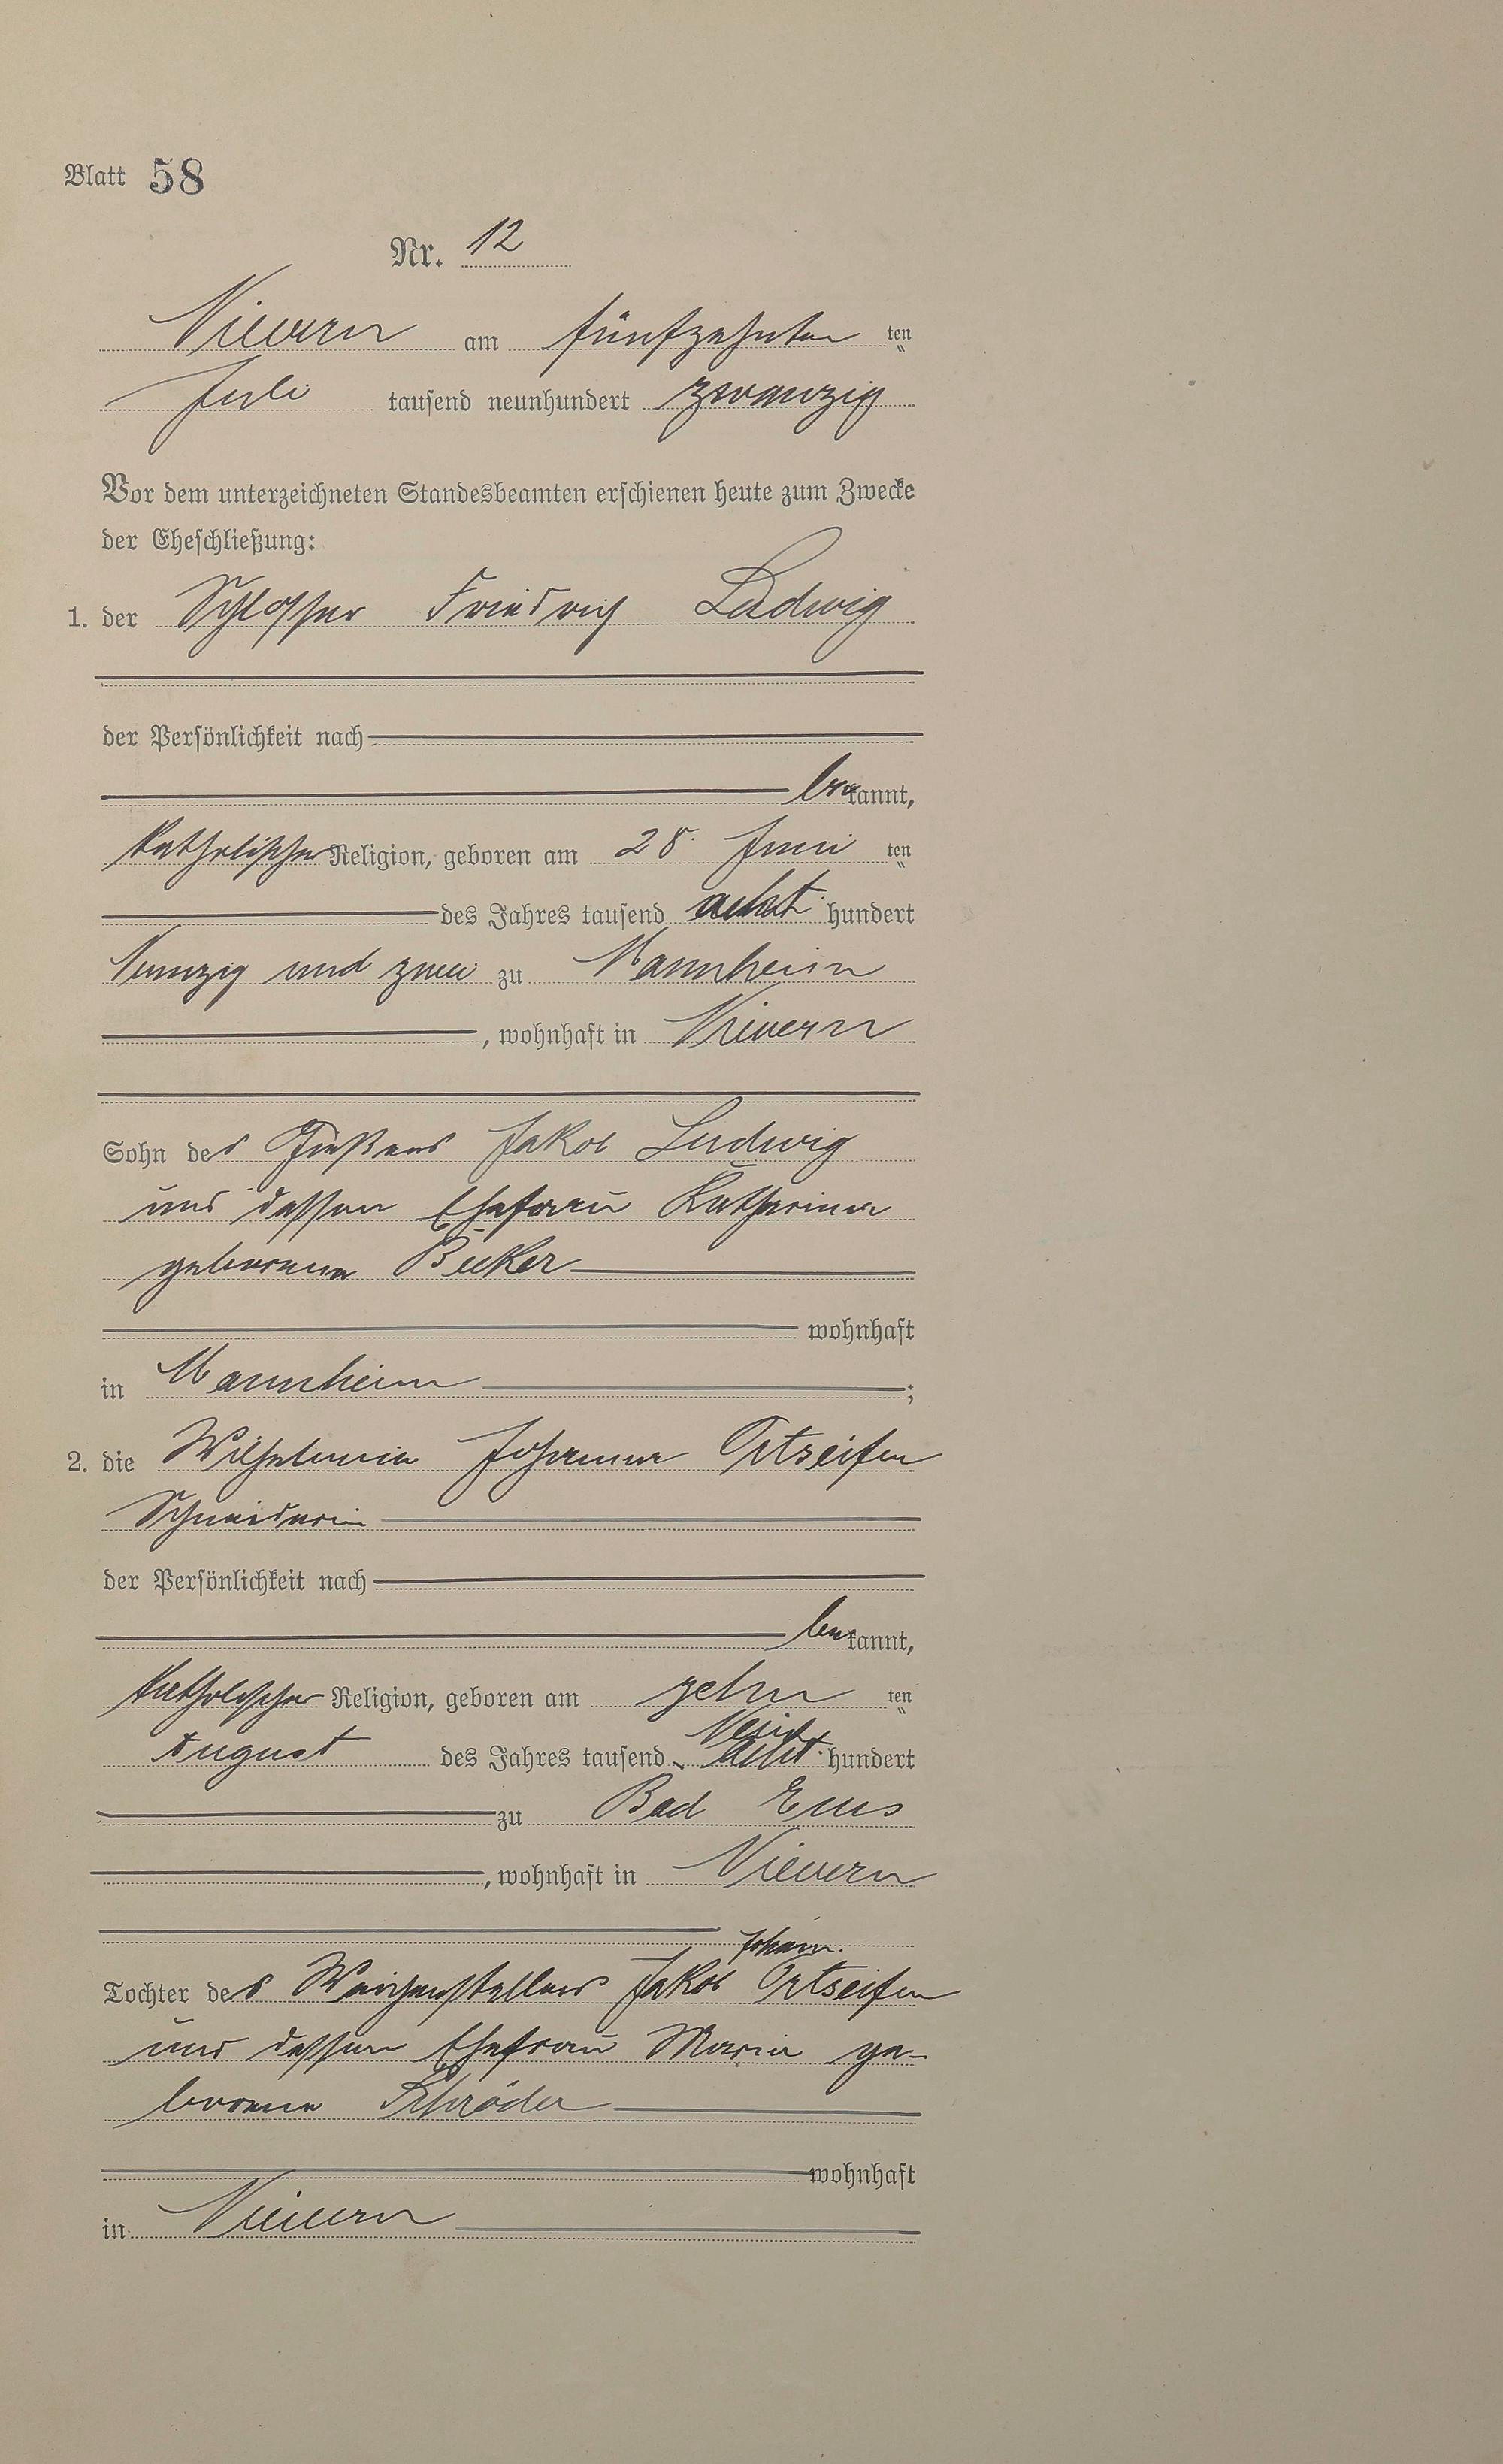 Blatt 58
Nr. 12
Nievern am fünfzehnten ten
Juli tausend neunhundert zwanzig
Vor dem unterzeichneten Standesbeamten erschienen heute zum Zwecke
der Eheschließung:
1. der Schlosser Friedrich Ludwig
der Persönlichkeit nach
bekannt,
katholischer Religion, geboren am 28. Juni ten
des Jahres tausend acht hundert
Neunzig und zwei zu Mannheim
, wohnhaft in Nievern
Sohn des Gießers Jakob Ludwig
und dessen Ehefrau Katharina
geborenen
wohnhaft
in Mannheim ;
2. die Wilhelmina Johanna Ortseifen
Schneiderin
der Persönlichkeit nach
bekannt,
katholischer Religion, geboren am zehn ten
Neun
August des Jahres tausend acht hundert
zu Bad Ems
, wohnhaft in Nievern
Johann
Tochter des Weichenstellers Jakob Ortseifen
und dessen Ehefrau Maria ge-
borenen Schröder
wohnhaft
in Nievern